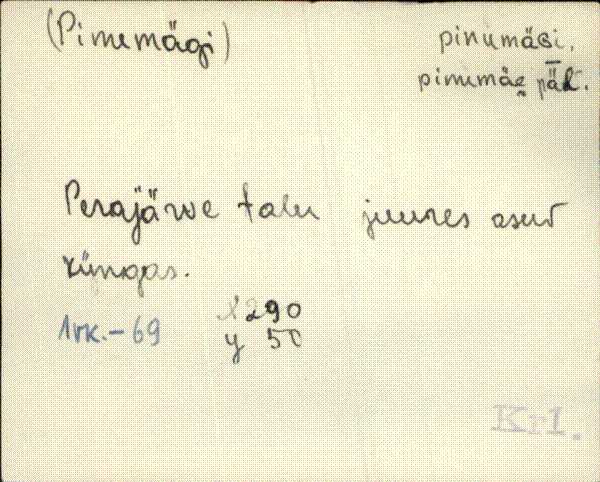 (Pimemägi)
pinumäGi,
pinumäe pāl.
Perajärve talu juures asuv
küngas.
1vk.-69
x 290
y 50
Krl.